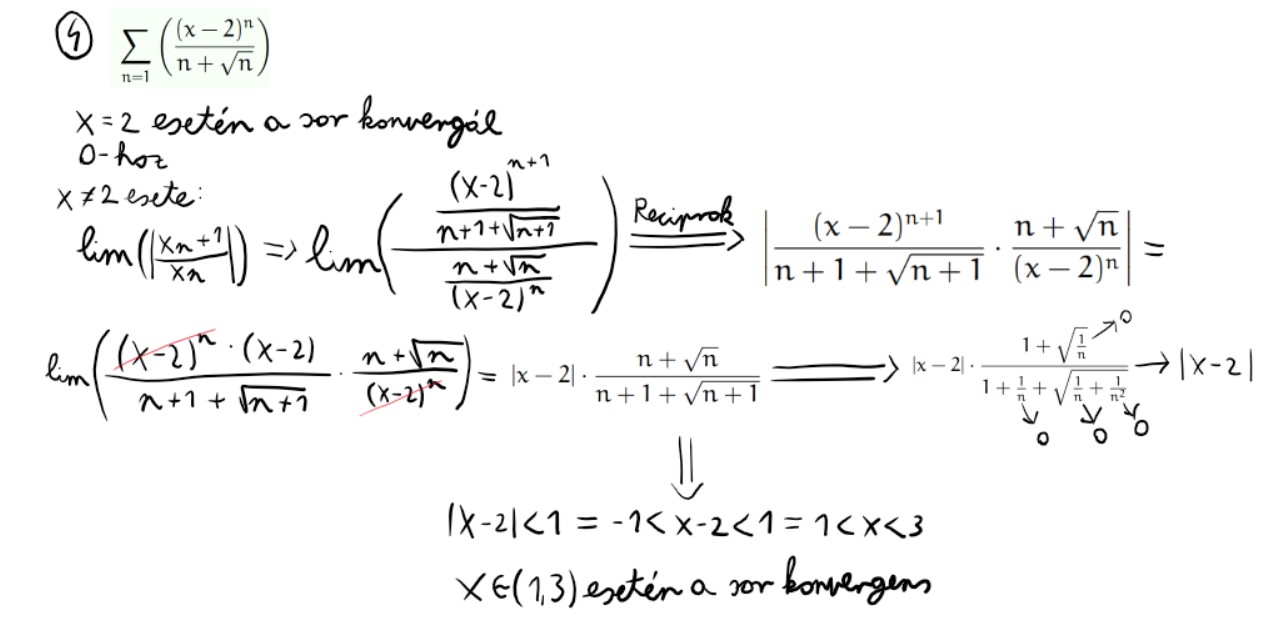 ④ ∑_{n=1} ( (x − 2)^n / (n + √n) )
x = 2 esetén a sor konvergál
0-hoz
x ≠ 2 esete:
lim(|x_{n+1} / x_n|) => lim( ((x-2)^{n+1} / (n+1+√(n+1))) / ((n+√n) / (x-2)^n) ) Reciprok ⟹ | (x − 2)^{n+1} / (n + 1 + √(n + 1)) · (n + √n) / (x − 2)^n | =
lim( ((x-2)^n · (x-2)) / (n+1 + √(n+1)) · (n+√n) / (x-2)^n ) = |x − 2| · (n + √n) / (n + 1 + √(n + 1)) ⟹ |x − 2| · (1 + √(1/n)) / (1 + 1/n + √(1/n + 1/n²)) → |x-2|
→ 0
↓ 0 ↓ 0 ↓ 0
⇓
|x-2|<1 = -1< x-2<1 = 1<x<3
x∈(1,3) esetén a sor konvergens